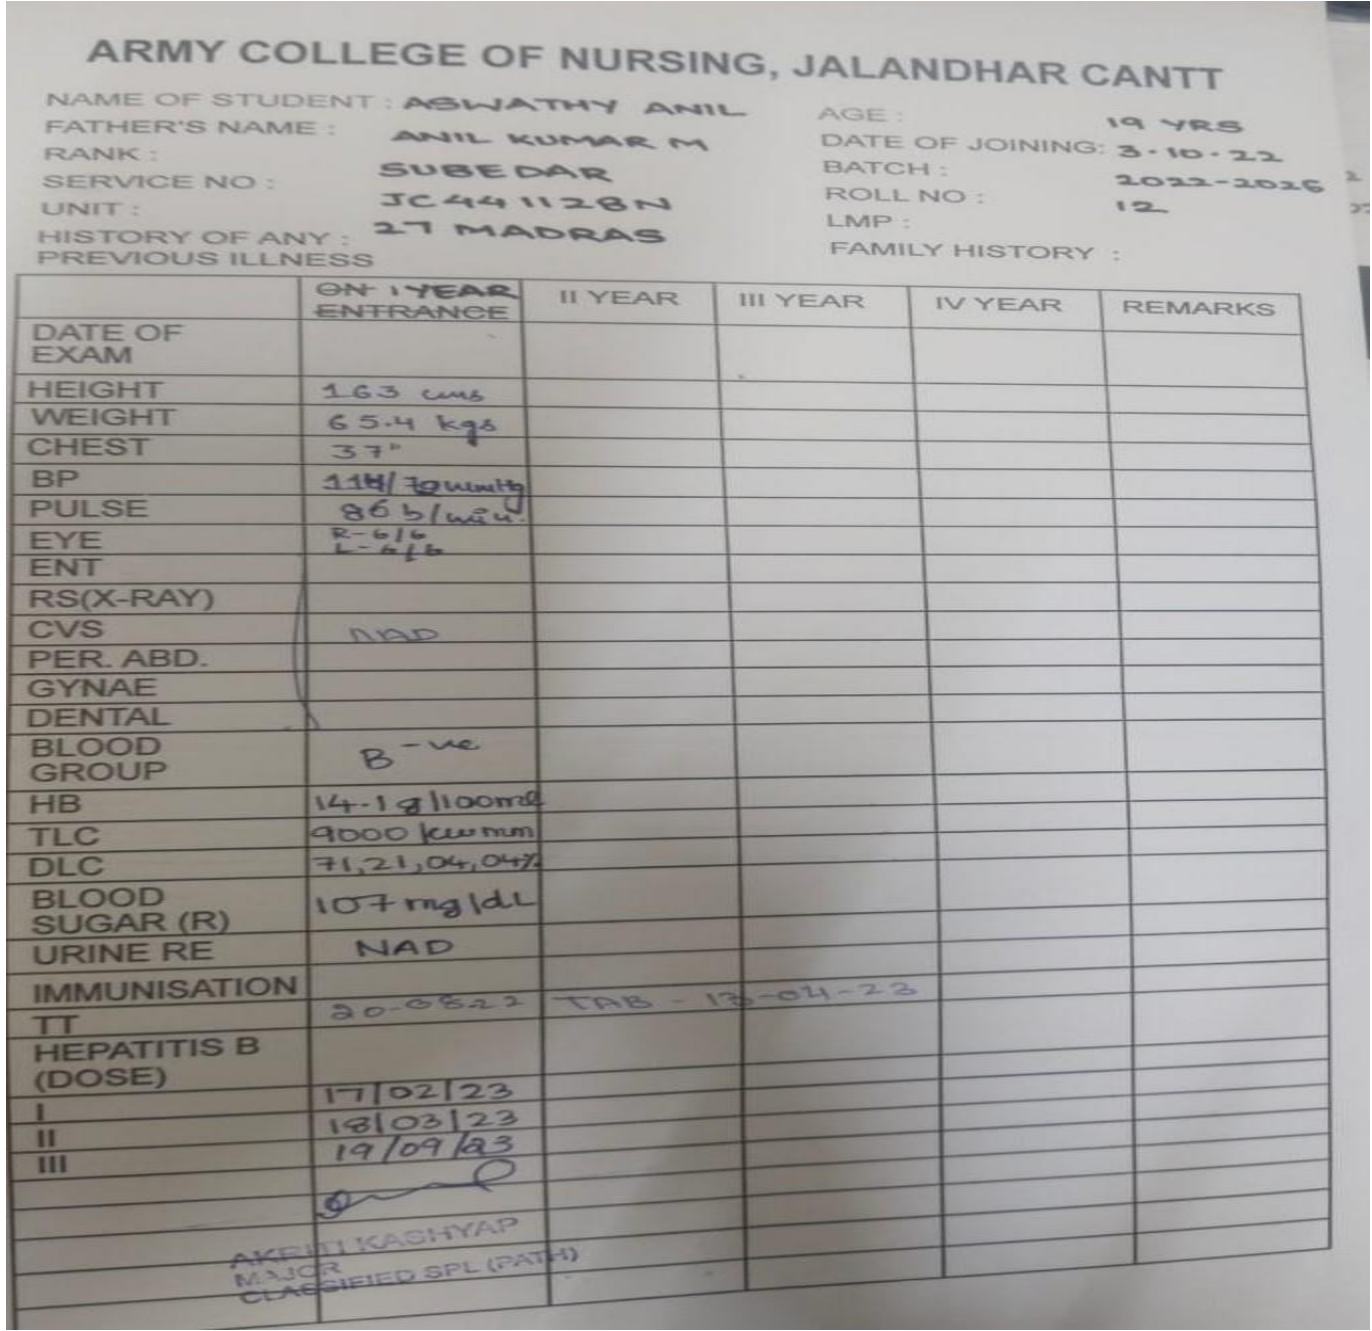 ARMY COLLEGE OF NURSING, JALANDHAR CANTT
NAME OF STUDENT : ASWATHY ANIL
FATHER'S NAME : ANIL KUMAR M
RANK : SUBEDAR
SERVICE NO : JC441128N
UNIT : 27 MADRAS
HISTORY OF ANY :
PREVIOUS ILLNESS
AGE : 19 YRS
DATE OF JOINING: 3-10-22
BATCH : 2022-2026
ROLL NO : 12
LMP :
FAMILY HISTORY :
ON I YEAR II YEAR III YEAR IV YEAR REMARKS
ENTRANCE
DATE OF
EXAM
HEIGHT 163 cms
WEIGHT 65.4 kgs
CHEST 37"
BP 114/70mmHg
PULSE 86 b/min.
EYE R-6/6
L-6/6
ENT
RS(X-RAY)
CVS NAD
PER. ABD.
GYNAE
DENTAL
BLOOD
GROUP B -ve
HB 14.1 g/100ml
TLC 9000 /cumm
DLC 71,21,04,04%
BLOOD
SUGAR (R) 107 mg/dL
URINE RE NAD
IMMUNISATION
TT 20-08-22 TAB - 13-04-23
HEPATITIS B
(DOSE)
I 17/02/23
II 18/03/23
III 19/09/23
AKRITI KASHYAP
MAJOR
CLASSIFIED SPL (PATH)